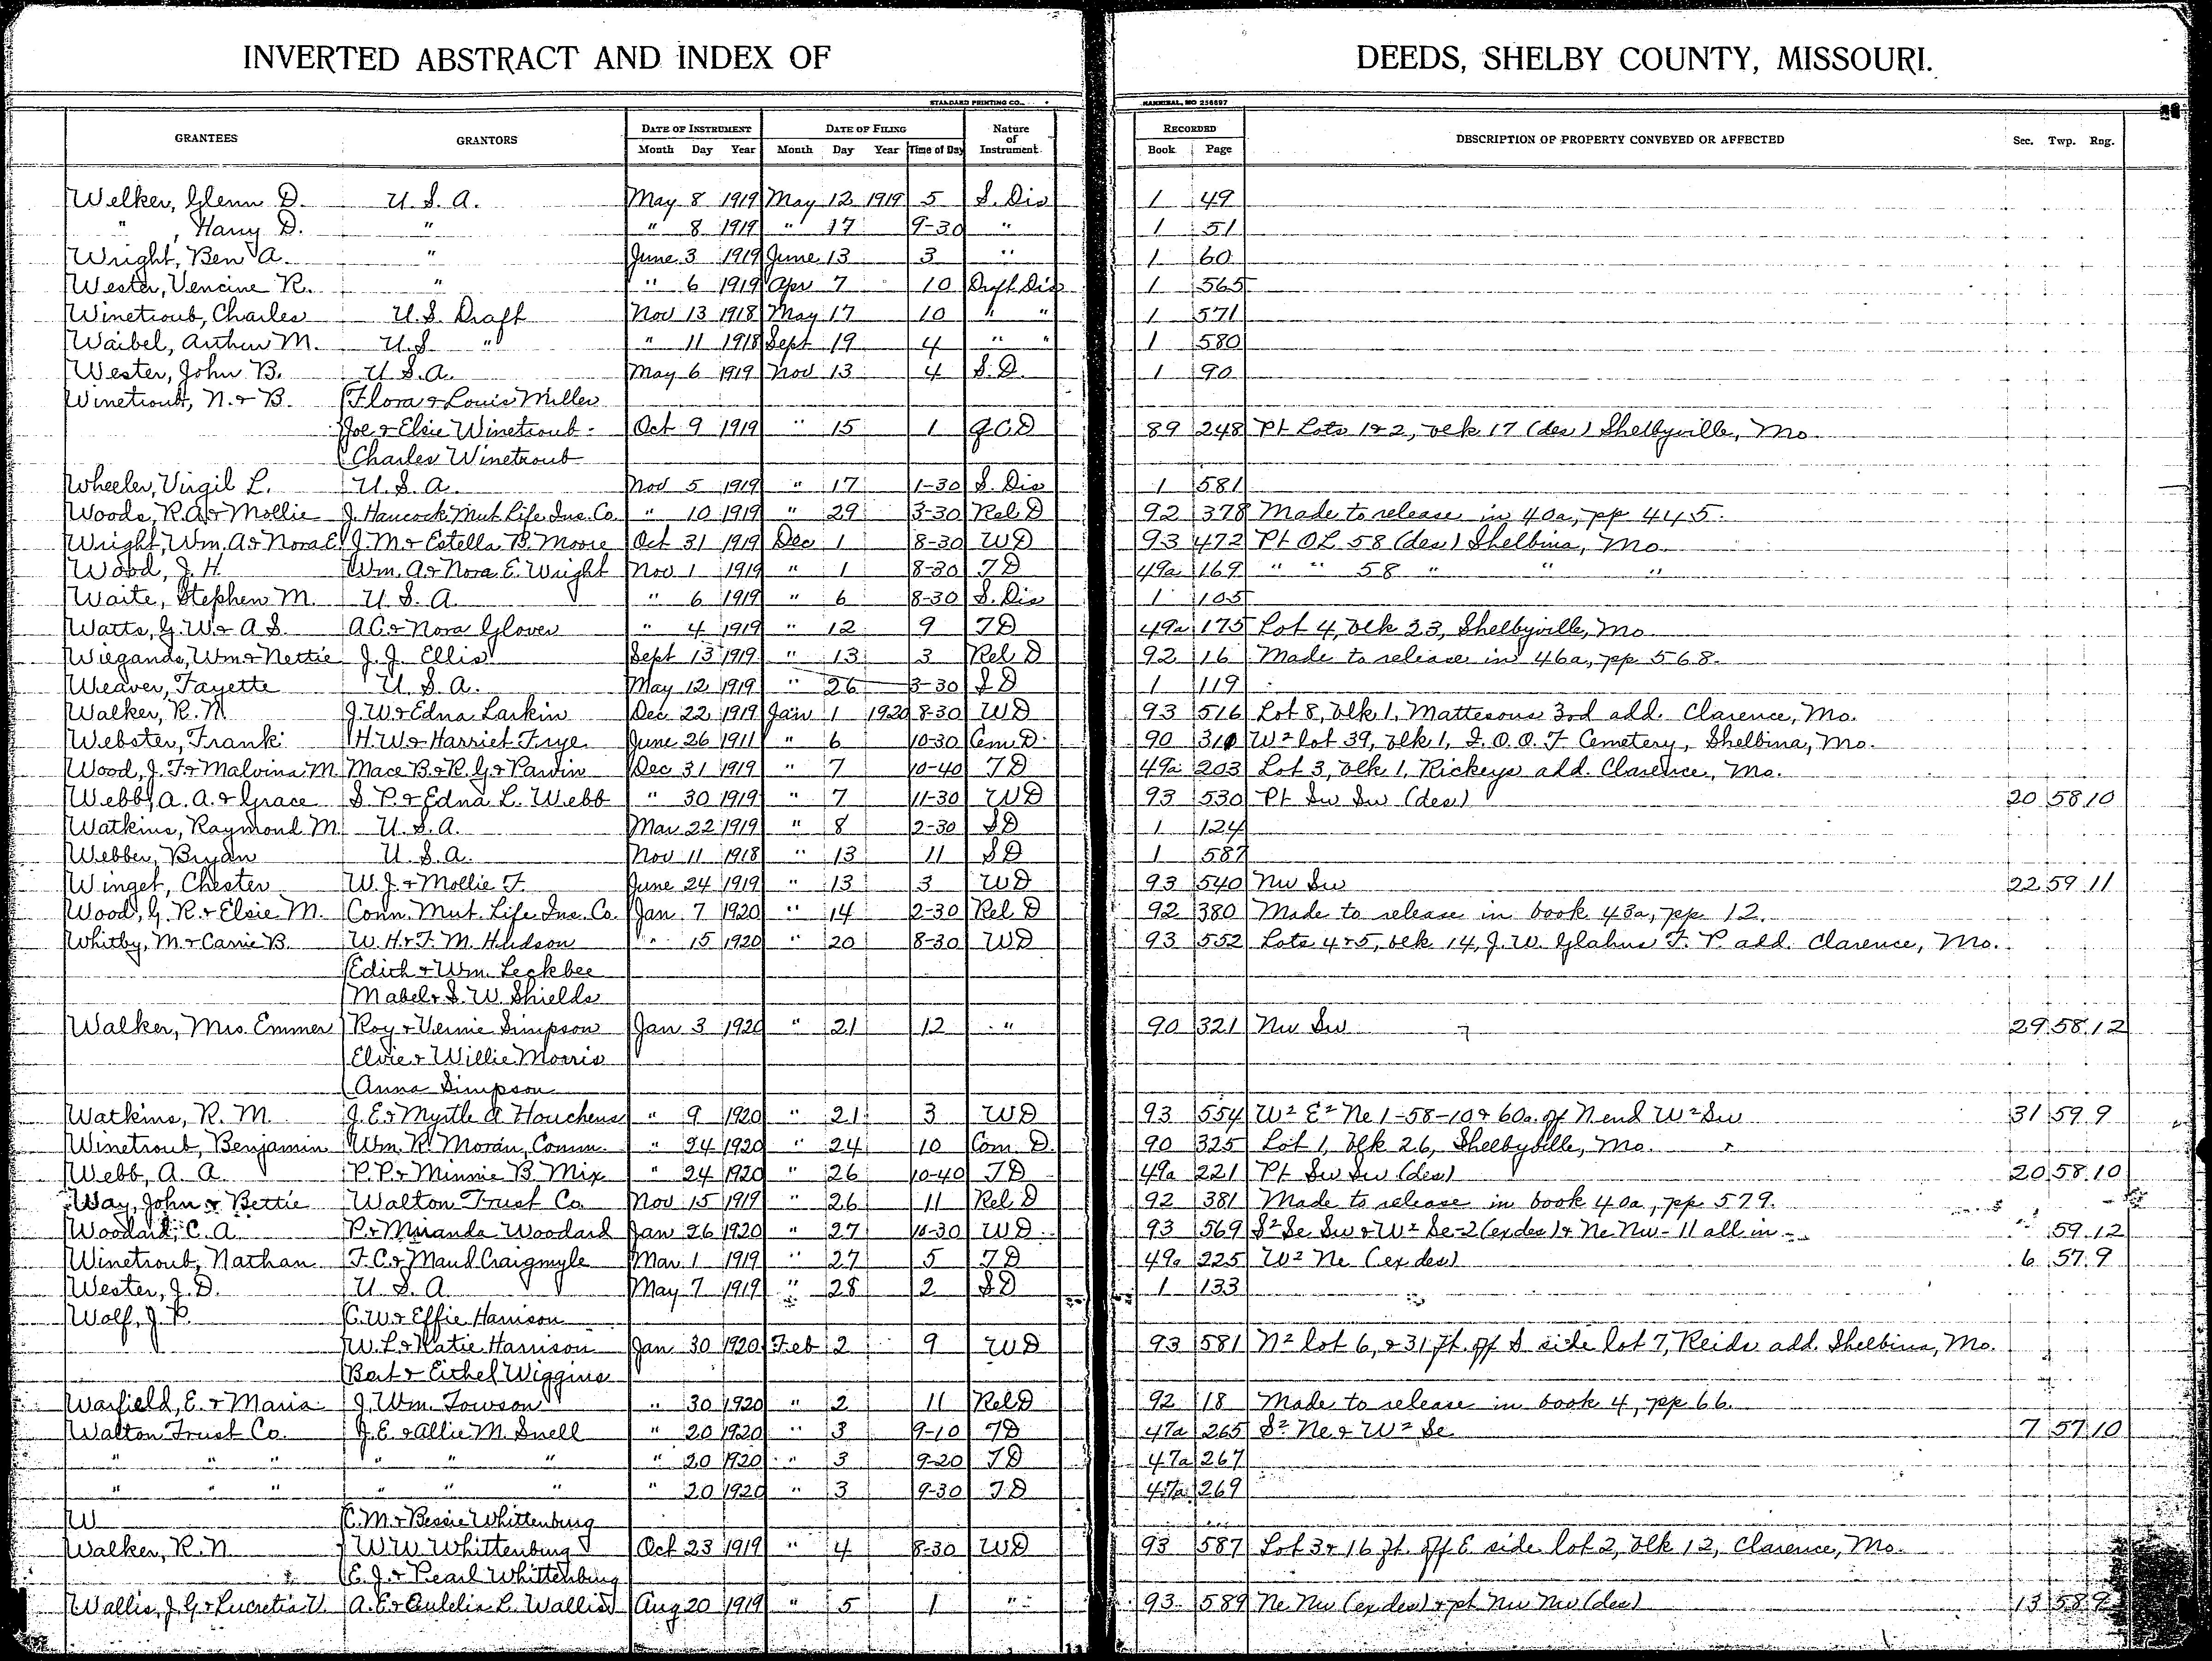 INVERTED ABSTRACT AND INDEX OF DEEDS, SHELBY COUNTY, MISSOURI.
STANDARD PRINTING CO. HANNIBAL, MO 256697
GRANTEES GRANTORS DATE OF INSTRUMENT DATE OF FILING Nature of Instrument RECORDED DESCRIPTION OF PROPERTY CONVEYED OR AFFECTED Sec. Twp. Rng.
Month Day Year Month Day Year Time of Day Book Page
Welker, Glenn D. U.S.A. May 8 1919 May 12 1919 5 S. Dis 1 49
" , Harry D. " " 8 1919 " 17 9-30 " 1 51
Wright, Ben A. " June 3 1919 June 13 3 " 1 60
Wester, Vencine R. " " 6 1919 Apr 7 10 Draft Dis 1 565
Winetroub, Charles U.S. Draft Nov 13 1918 May 17 10 " " 1 571
Waibel, Arthur M. U.S " " 11 1918 Sept 19 4 " " 1 580
Wester, John B. U.S.A. May 6 1919 Nov 13 4 S.D. 1 90
Winetroub, N. & B. Flora & Louis Miller
Joe & Elsie Winetroub Oct 9 1919 " 15 1 QCD 89 248 Pt Lots 1&2, blk 17 (des) Shelbyville, Mo
Charles Winetroub
Wheeler, Virgil L. U.S.A. Nov 5 1919 " 17 1-30 S. Dis 1 581
Woods, R.A. & Mollie J. Hancock Mut Life Ins. Co. " 10 1919 " 29 3-30 Rel D 92 378 Made to release in 40a, pp 445.
Wright, Wm. A & Nora E. J.M. & Estella B. Moore Oct 31 1919 Dec 1 8-30 WD 93 472 Pt OL 58 (des) Shelbina, Mo
Wood, J.H. Wm. A & Nora E. Wright Nov 1 1919 " 1 8-30 TD 49a 169 " " 58 " " "
Waite, Stephen M. U.S.A. " 6 1919 " 6 8-30 S. Dis 1 105
Watts, G.W. & A.S. A C & Nora Glover " 4 1919 " 12 9 TD 49a 175 Lot 4, blk 23, Shelbyville, Mo
Wiegands, Wm & Nettie J.J. Ellis Sept 13 1919 " 13 3 Rel D 92 16 Made to release in 46a, pp 568.
Weaver, Fayette U.S.A. May 12 1919 " 26 3-30 SD 1 119
Walker, R.N. J.W. & Edna Larkin Dec 22 1919 Jan 1 1920 8-30 WD 93 516 Lot 8, blk 1, Mattesons 3rd add. Clarence, Mo.
Webster, Frank H.W. & Harriet Frye June 26 1911 " 6 10-30 Cem. D. 90 310 W² lot 39, blk 1, I.O.O.F Cemetery, Shelbina, Mo.
Wood, J.F. & Malvina M. Mace B. & R.G. & Parvin Dec 31 1919 " 7 10-40 TD 49a 203 Lot 3, blk 1, Rickeys add. Clarence, Mo.
Webb, A.A. & Grace S.P. & Edna L. Webb " 30 1919 " 7 11-30 WD 93 530 Pt Sw Sw (des) 20 58 10
Watkins, Raymond M. U.S.A. Mar 22 1919 " 8 2-30 SD 1 124
Webber, Bryan U.S.A. Nov 11 1918 " 13 11 SD 1 587
Winget, Chester W.J. & Mollie F. June 24 1919 " 13 3 WD 93 540 Nw Sw 22 59 11
Wood, G.R. & Elsie M. Conn. Mut. Life Ins. Co. Jan 7 1920 " 14 2-30 Rel D 92 380 Made to release in book 43a, pp 12.
Whitby, M. & Carrie B. W.H. & F.M. Hudson " 15 1920 " 20 8-30 WD 93 552 Lots 4&5, blk 14, J.W. Glahns F.P. add. Clarence, Mo.
Edith & Wm. Leckbee
Mabel & S.W. Shields
Walker, Mrs. Emmer Roy & Vernie Simpson Jan 3 1920 " 21 12 " 90 321 Nw Sw 29 58 12
Elvie & Willie Morris
Anna Simpson
Watkins, R.M. J.E. & Myrtle A Houchens " 9 1920 " 21 3 WD 93 554 W² E² Ne 1-58-10 & 60a. off N end W² Sw 31 59 9
Winetroub, Benjamin Wm. R. Moran, Comm. " 24 1920 " 24 10 Com. D. 90 325 Lot 1, blk 26, Shelbyville, Mo.
Webb, A.A. P.P. & Minnie B. Mix " 24 1920 " 26 10-40 TD 49a 221 Pt Sw Sw (des) 20 58 10
Way, John & Bettie Walton Trust Co. Nov 15 1919 " 26 11 Rel D 92 381 Made to release in book 40a, pp 579.
Woodard, C.A. P. & Miranda Woodard Jan 26 1920 " 27 10-30 WD 93 569 S² Se Sw & W² Se-2 (ex des) & Ne Nw-11 all in 59 12
Winetroub, Nathan F.C. & Maud Craigmyle Mar. 1 1919 " 27 5 TD 49a 225 W² Ne (ex des) 6 57 9
Wester, J.D. U.S.A. May 7 1919 " 28 2 SD 1 133
Wolf, J.P. C.W. & Effie Harrison
W.L. & Katie Harrison Jan 30 1920 Feb 2 9 WD 93 581 N² lot 6, & 31 ft. off S side lot 7, Reids add. Shelbina, Mo.
Bert & Eithel Wiggins
Warfield, E. & Maria J. Wm. Towson " 30 1920 " 2 11 Rel D 92 18 Made to release in book 4, pp 66.
Walton Trust Co. J.E. & Allie M. Snell " 20 1920 " 3 9-10 TD 47a 265 S² Ne & W² Se 7 57 10
" " " " " " " 20 1920 " 3 9-20 TD 47a 267
" " " " " " " 20 1920 " 3 9-30 TD 47a 269
W C.M. & Bessie Whittenburg
Walker, R.N. W.W. Whittenburg Oct 23 1919 " 4 8-30 WD 93 587 Lot 3 & 16 ft. off E. side lot 2, blk 12, Clarence, Mo.
E.J. & Pearl Whittenburg
Wallis, J.G. & Lucretia V. A.E. & Eulelia L. Wallis Aug 20 1919 " 5 1 " 93 589 Ne Nw (ex des) & pt Nw Nw (des) 13 58 9